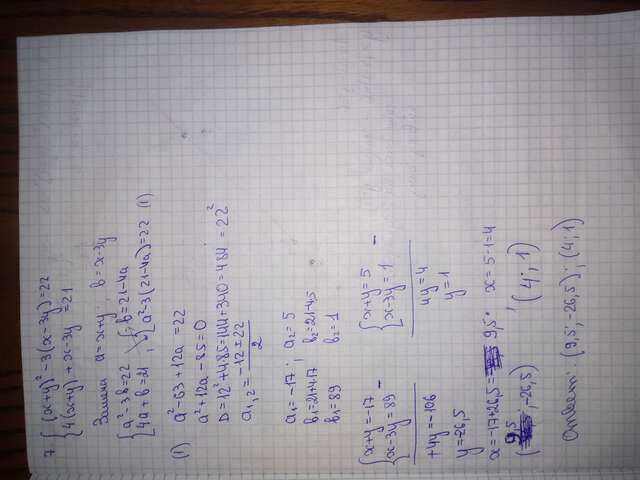 7 { (x+y)² -3(x-3y)=22
4(x+y) + x-3y =21
Замена a=x+y; в=x-3y
{ a²-3в=22 { в=21-4a
4a+в=21 ; a²-3(21-4a)=22 (1)
(1) a²-63+12a =22
a²+12a-85=0
D=12²+4·85=144+340=484 =22²
a₁,₂= -12±22 / 2
a₁=-17 ; a₂=5
в₁=21+4·17 в₂=21-4·5
в₁=89 в₂=1
{ x+y=-17 - { x+y=5 -
x-3y=89 x-3y=1
+4y=-106 4y=4
y=-26,5 y=1
x=-17+26,5= 9,5 · x=5-1=4
(9,5 ; -26,5) ' (4; 1)
Ответ: (9,5; -26,5); (4; 1)